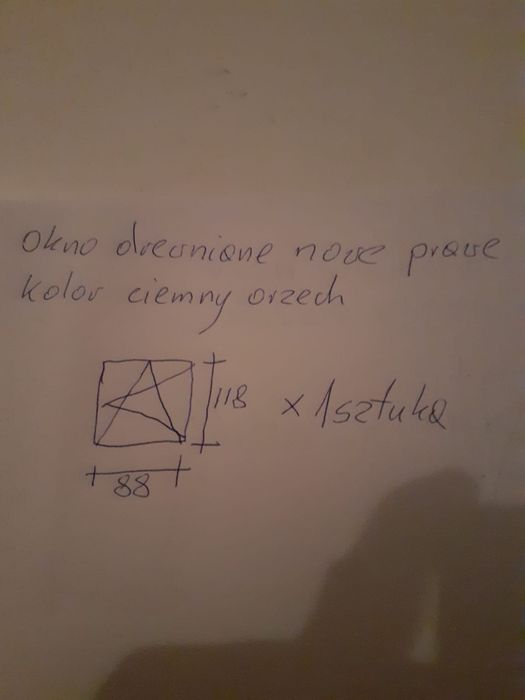 Okno drewniane nowe prawe
kolor ciemny orzech
118
x 1 sztuka
88